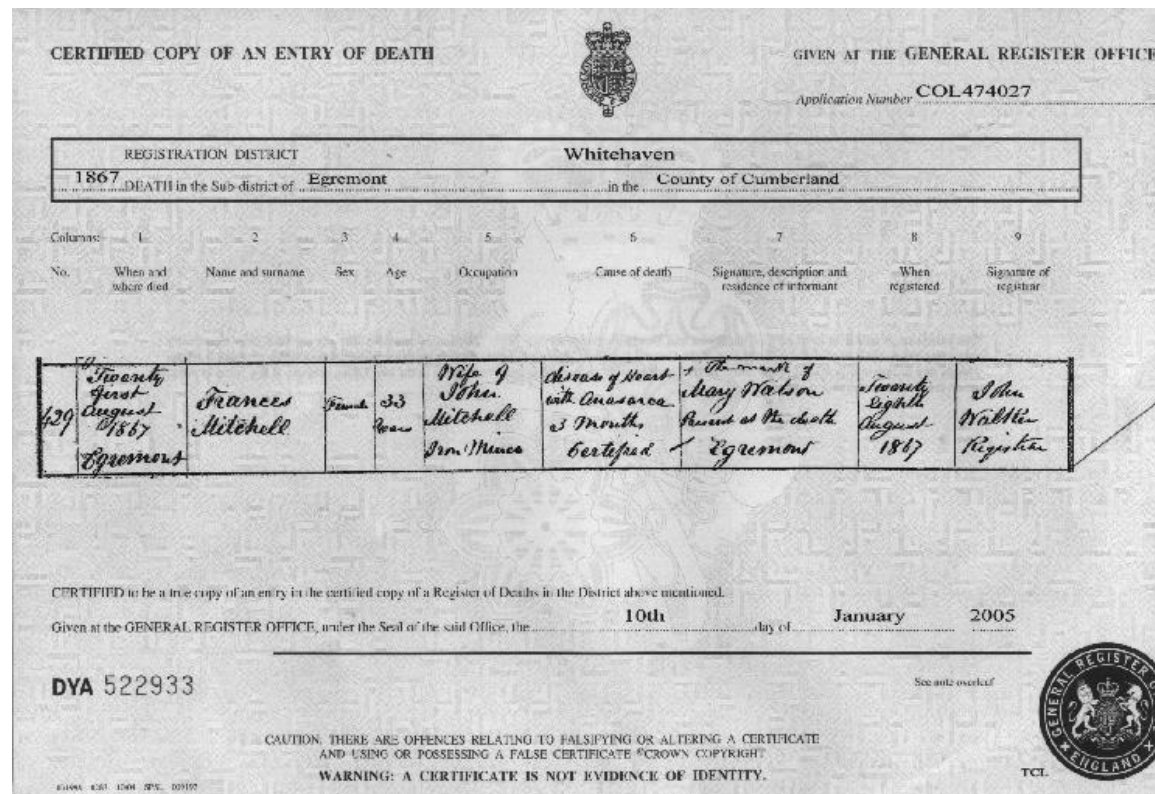 CERTIFIED COPY OF AN ENTRY OF DEATH
GIVEN AT THE GENERAL REGISTER OFFICE
Application Number COL474027
REGISTRATION DISTRICT Whitehaven
1867 DEATH in the Sub-district of Egremont in the County of Cumberland
Columns: 1 2 3 4 5 6 7 8 9
No. When and where died Name and surname Sex Age Occupation Cause of death Signature, description and residence of informant When registered Signature of registrar
429
Twenty
first
August
1867
Egremont
Frances
Mitchell
Female
33
years
Wife of
John
Mitchell
Iron Miner
disease of Heart
with Anasarca
3 Months
Certified
The mark of
Mary Watson
Present at the death
Egremont
Twenty
Eighth
August
1867
John
Walker
Registrar
CERTIFIED to be a true copy of an entry in the certified copy of a Register of Deaths in the District above mentioned.
Given at the GENERAL REGISTER OFFICE, under the Seal of the said Office, the 10th day of January 2005
DYA 522933
See note overleaf
CAUTION: THERE ARE OFFENCES RELATING TO FALSIFYING OR ALTERING A CERTIFICATE
AND USING OR POSSESSING A FALSE CERTIFICATE ©CROWN COPYRIGHT
WARNING: A CERTIFICATE IS NOT EVIDENCE OF IDENTITY.
TCL
GENERAL REGISTER
ENGLAND